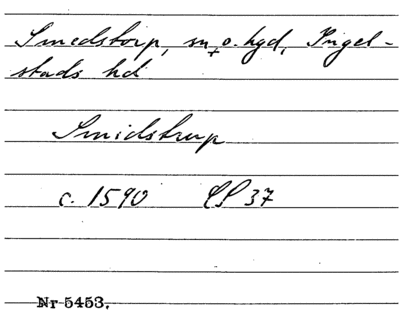 Smedstorp, sn o. hgd, Ingel-
stads hd
Smidstrup
c. 1590 LP 37
Nr 5453.